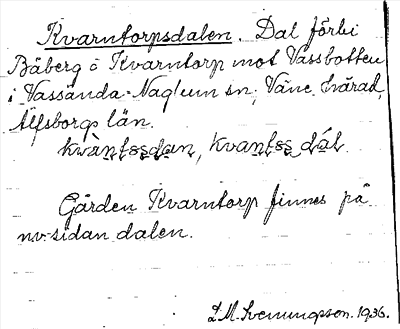 Kvarntorpsdalen. Dal förbi
Båberg o Kvarntorp mot Vassbotten
i Vassända-Naglum sn, Väne härad,
Älfsborgs län.
Gården Kvarntorp finnes på
nv-sidan dalen.
L.M. Svenungsson. 1936.